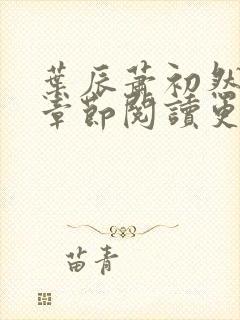 葉辰蕭初然
章節閱讀更
苗青